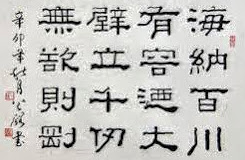 海納百川
有容迺大
壁立千仞
無欲則剛
辛卯年秋月